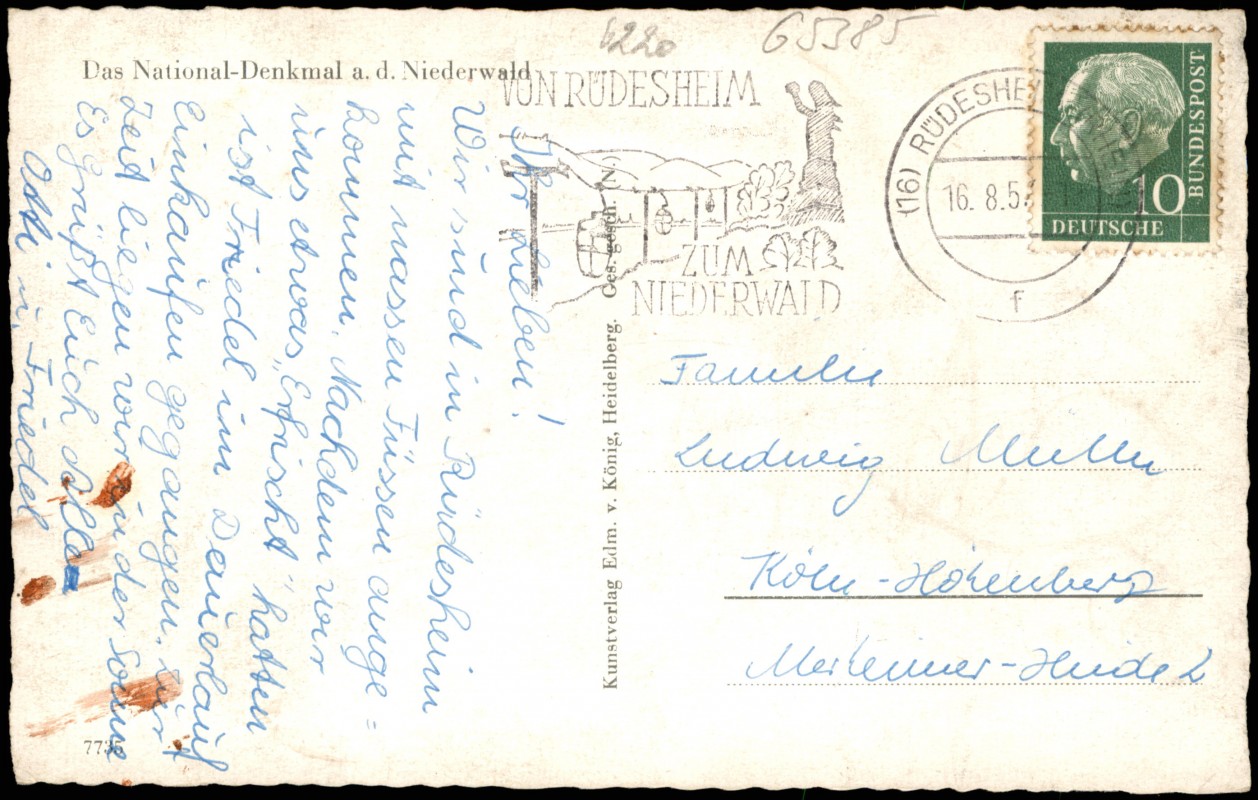 4220 65385
Das National-Denkmal a. d. Niederwald
VON RÜDESHEIM
ZUM
NIEDERWALD
(16) RÜDESHEIM
16. 8. 5
f
10
DEUTSCHE
BUNDESPOST
Ihr Lieben!
Wir sind in Rüdesheim
mit nassen Füssen ange=
kommen. Nachdem wir
uns etwas „Erfrischt" hatten
ist Friedel im Dauerlauf
Einkaufen gegangen. Zur
Zeit liegen wir in der Sonne
Es grüßt Euch alle
Otti u. Friedel
Kunstverlag Edm. v. König, Heidelberg. Ges. gesch. (N)
Familie
Ludwig Müller
Köln-Höhenberg
Merheimer-Heide 2
7735